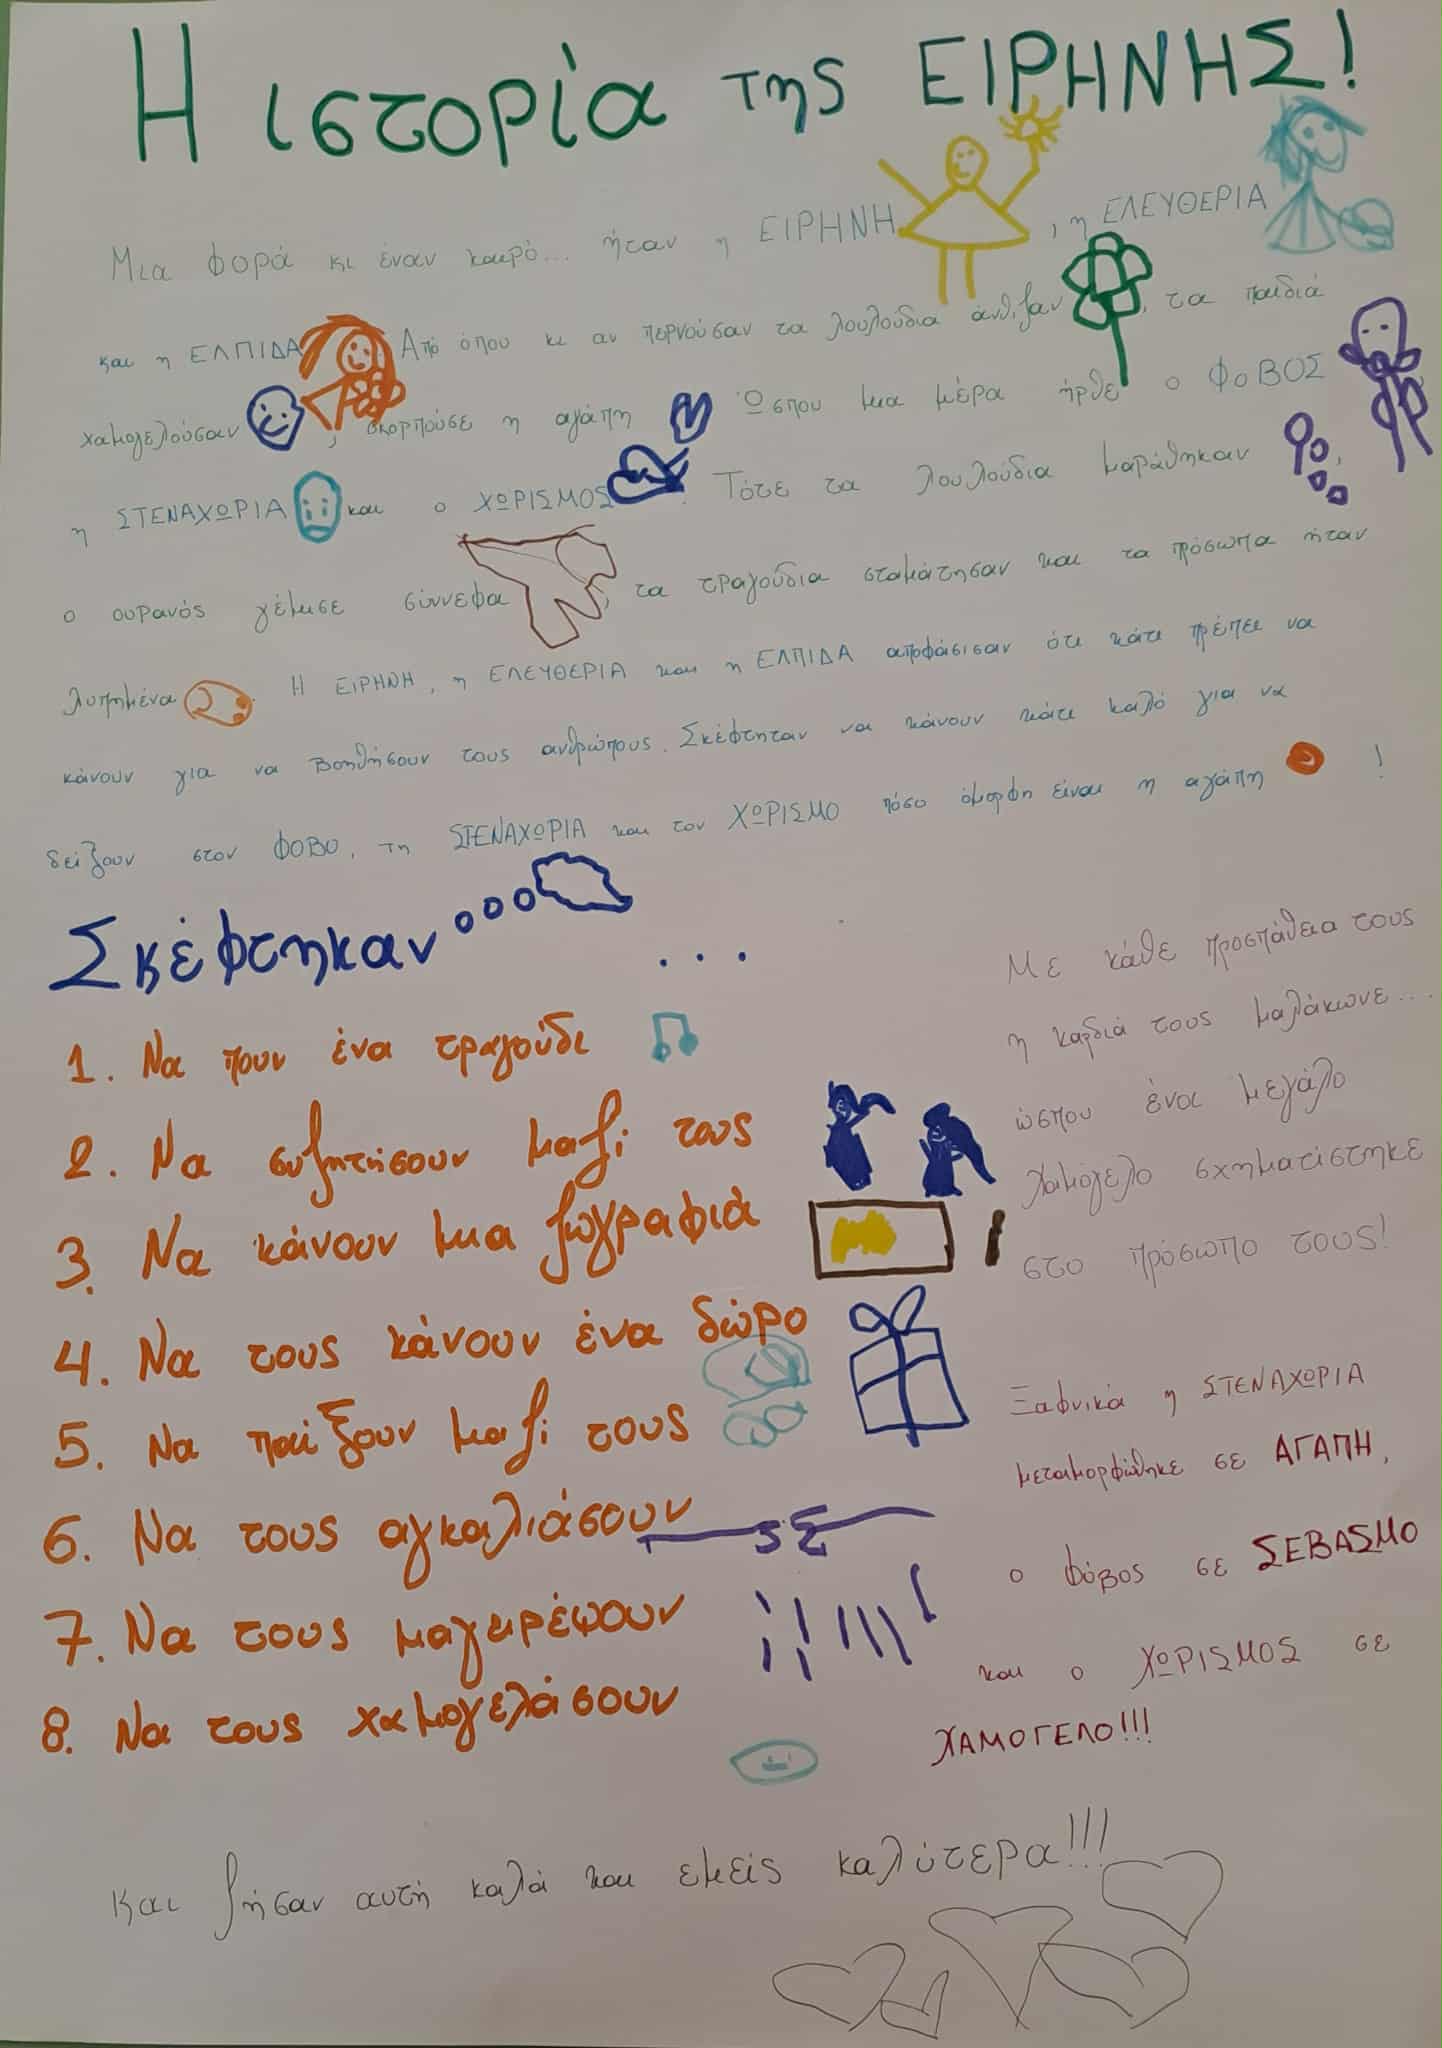 Η ιστορία της ΕΙΡΗΝΗΣ!
Μια φορά κι έναν καιρό... ήταν η ΕΙΡΗΝΗ, η ΕΛΕΥΘΕΡΙΑ
και η ΕΛΠΙΔΑ. Από όπου κι αν περνούσαν τα λουλούδια άνθιζαν, τα παιδιά
χαμογελούσαν, σκορπούσε η αγάπη. Ώσπου μια μέρα ήρθε ο ΦΟΒΟΣ,
η ΣΤΕΝΑΧΩΡΙΑ και ο ΧΩΡΙΣΜΟΣ. Τότε τα λουλούδια μαράθηκαν,
ο ουρανός γέμισε σύννεφα, τα τραγούδια σταμάτησαν και τα πρόσωπα ήταν
λυπημένα. Η ΕΙΡΗΝΗ, η ΕΛΕΥΘΕΡΙΑ και η ΕΛΠΙΔΑ αποφάσισαν ότι κάτι πρέπει να
κάνουν για να βοηθήσουν τους ανθρώπους. Σκέφτηταν να κάνουν κάτι καλό για να
δείξουν στον ΦΟΒΟ, τη ΣΤΕΝΑΧΩΡΙΑ και τον ΧΩΡΙΣΜΟ πόσο όμορφη είναι η αγάπη!
Σκέφτηκαν...
1. Να πουν ένα τραγούδι
2. Να συζητήσουν μαζί τους
3. Να κάνουν μια ζωγραφιά
4. Να τους κάνουν ένα δώρο
5. Να παίξουν μαζί τους
6. Να τους αγκαλιάσουν
7. Να τους μαγειρέψουν
8. Να τους χαμογελάσουν
Με κάθε προσπάθεια τους
η καρδιά τους μαλάκωνε...
ώσπου ένα μεγάλο
χαμόγελο σχηματίστηκε
στο πρόσωπο τους!
Ξαφνικά η ΣΤΕΝΑΧΩΡΙΑ
μεταμορφώθηκε σε ΑΓΑΠΗ,
ο φόβος σε ΣΕΒΑΣΜΟ
και ο ΧΩΡΙΣΜΟΣ σε
ΧΑΜΟΓΕΛΟ!!!
Και ζήσαν αυτή καλά και εμείς καλύτερα!!!